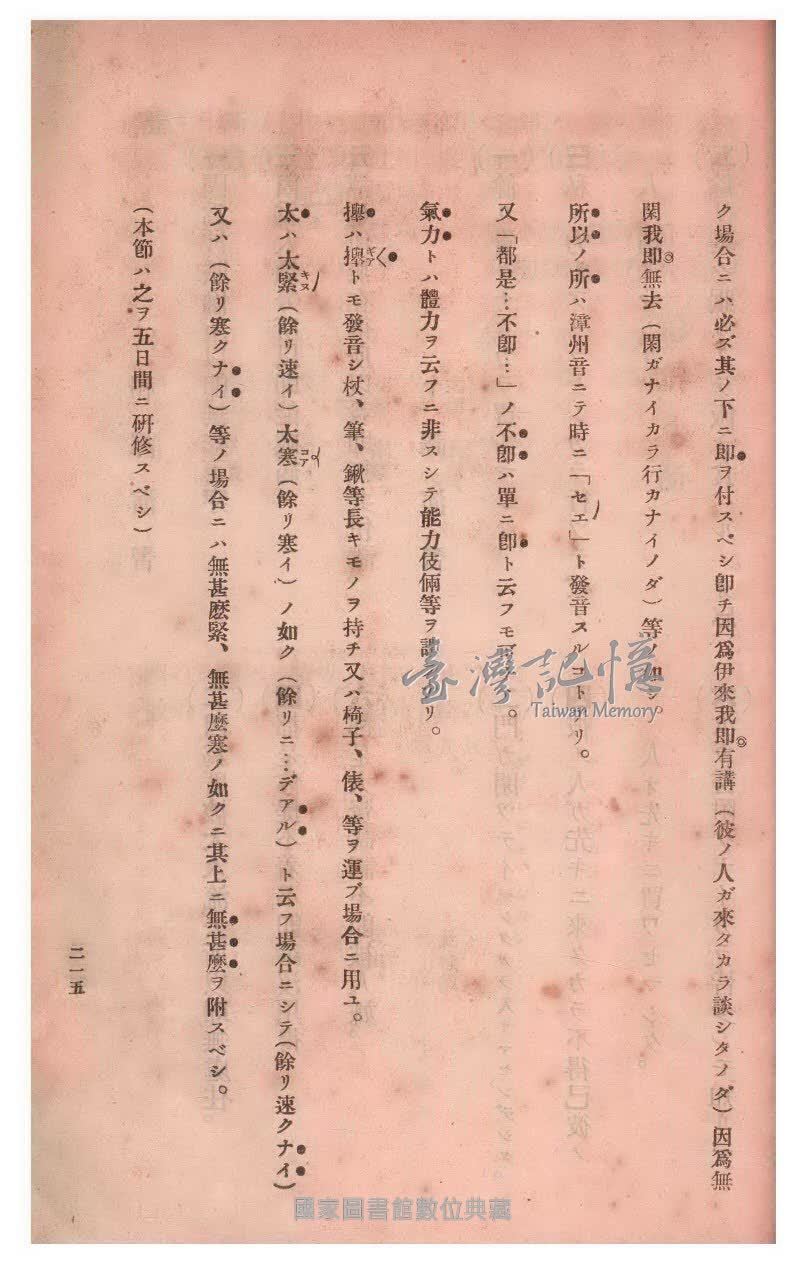 ク場合ニハ必ズ其ノ下ニ即ヲ付スベシ卽チ因爲伊來我即有講(彼ノ人ガ來タカラ談シタノダ)因爲無
閑我即無去(閑ガナイカラ行カナイノダ)等ノ如シ。
所以ノ所ハ漳州音ニテ時ニ「セエ」ト發音スルコトアリ。
又「都是…不卽…」ノ不卽ハ單ニ卽ト云フモ
氣力トハ體力ヲ云フニ非スシテ能力伎倆等ヲ リ。
攑ハ攑ギアトモ發音シ杖、筆、鍬等長キモノヲ持チ又ハ椅子、俵、等ヲ運ブ場合ニ用ユ。
太ハ太緊キヌ(餘リ速イ)太寒コア(餘リ寒イ)ノ如ク(餘リニ…デアル)ト云フ場合ニシテ(餘リ速クナイ)
又ハ(餘リ寒クナイ)等ノ場合ニハ無甚麽緊、無甚麽寒ノ如クニ其上ニ無甚麽ヲ附スベシ。
(本節ハ之ヲ五日間ニ硏修スベシ)
二一五
臺灣記憶
Taiwan Memory
國家圖書館數位典藏